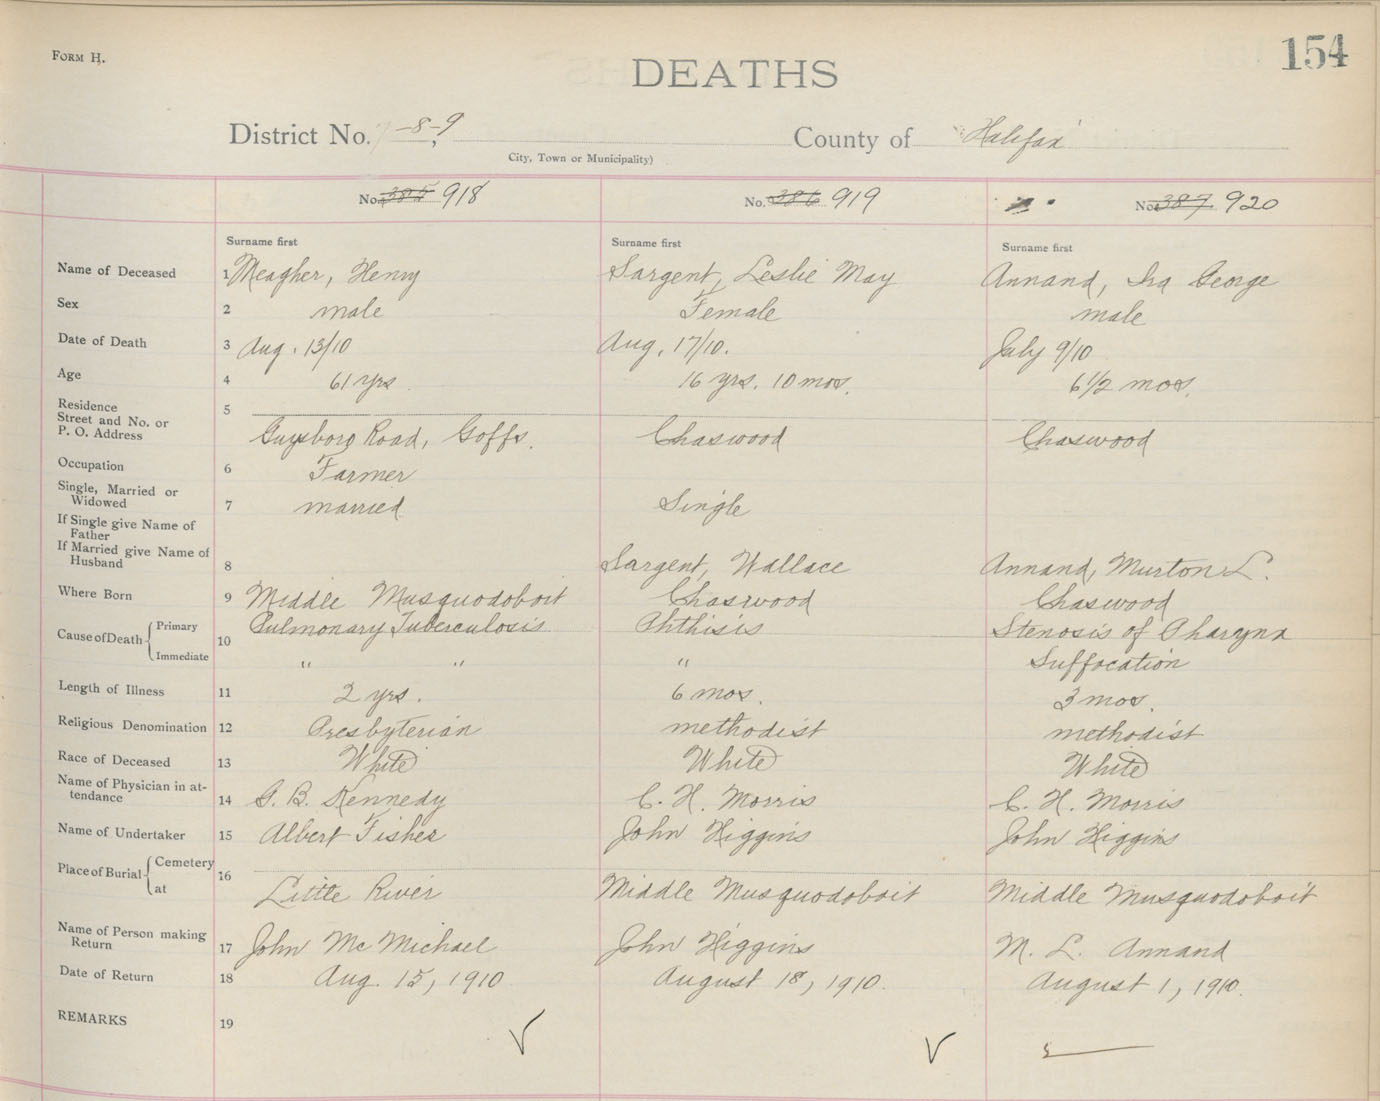 FORM H.
154
DEATHS
District No. 7-8-9
County of "Halifax"
City, Town or Municipality)
No. 385 918
No. 386 919
No. 387 920
Surname first
Surname first
Surname first
Name of Deceased 1 Meagher, Henry
Sargent, Leslie May
Annand, Ira George
Sex 2 male
Female
male
Date of Death 3 Aug. 13/10
Aug. 17/10.
July 9/10
Age 4 61 yrs
16 yrs. 10 mos.
6 1/2 mos.
Residence
Street and No. or
P. O. Address 5
Guysboro Road, Goffs.
Chaswood
Chaswood
Occupation 6 Farmer
Single, Married or
Widowed 7 married
Single
If Single give Name of
Father
If Married give Name of
Husband 8
Sargent, Wallace
Annand, Murton L.
Where Born 9 Middle Musquodoboit
Chaswood
Chaswood
Cause of Death Primary 10 Pulmonary Tuberculosis
Phthisis
Stenosis of Pharynx
Immediate " "
"
Suffocation
Length of Illness 11 2 yrs.
6 mos.
3 mos.
Religious Denomination 12 Presbyterian
methodist
methodist
Race of Deceased 13 White
White
White
Name of Physician in at-
tendance 14 G. B. Kennedy
C. H. Morris
C. H. Morris
Name of Undertaker 15 Albert Fisher
John Higgins
John Higgins
Place of Burial Cemetery 16
at Little River
Middle Musquodoboit
Middle Musquodoboit
Name of Person making
Return 17 John McMichael
John Higgins
M. L. Annand
Date of Return 18 Aug. 15, 1910
August 18, 1910.
August 1, 1910.
REMARKS 19